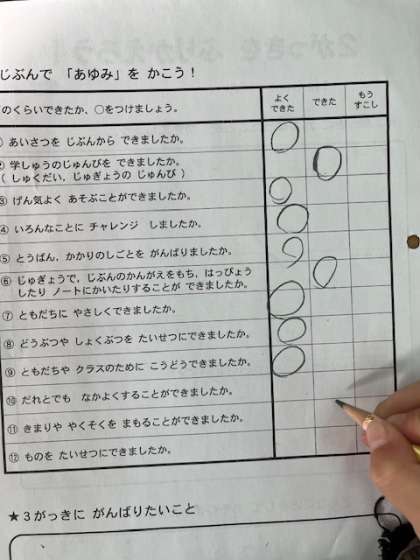 じぶんで 「あゆみ」を かこう！
のくらいできたか、○をつけましょう。
よく
できた
できた
もう
すこし
あいさつを じぶんから できましたか。
② 学しゅうのじゅんびを できましたか。
（ しゅくだい，じゅぎょうの じゅんび ）
③ げん気よく あそぶことができましたか。
④ いろんなことに チャレンジ しましたか。
⑤ とうばん，かかりのしごとを がんばりましたか。
⑥ じゅぎょうで，じぶんのかんがえをもち，はっぴょう
したり ノートにかいたりすることが できましたか。
⑦ ともだちに やさしくできましたか。
⑧ どうぶつや しょくぶつを たいせつにできましたか。
⑨ ともだちや クラスのために こうどうできましたか。
⑩ だれとでも なかよくすることができましたか。
⑪ きまりや やくそくを まもることができましたか。
⑫ ものを たいせつにできましたか。
★３がっきに がんばりたいこと